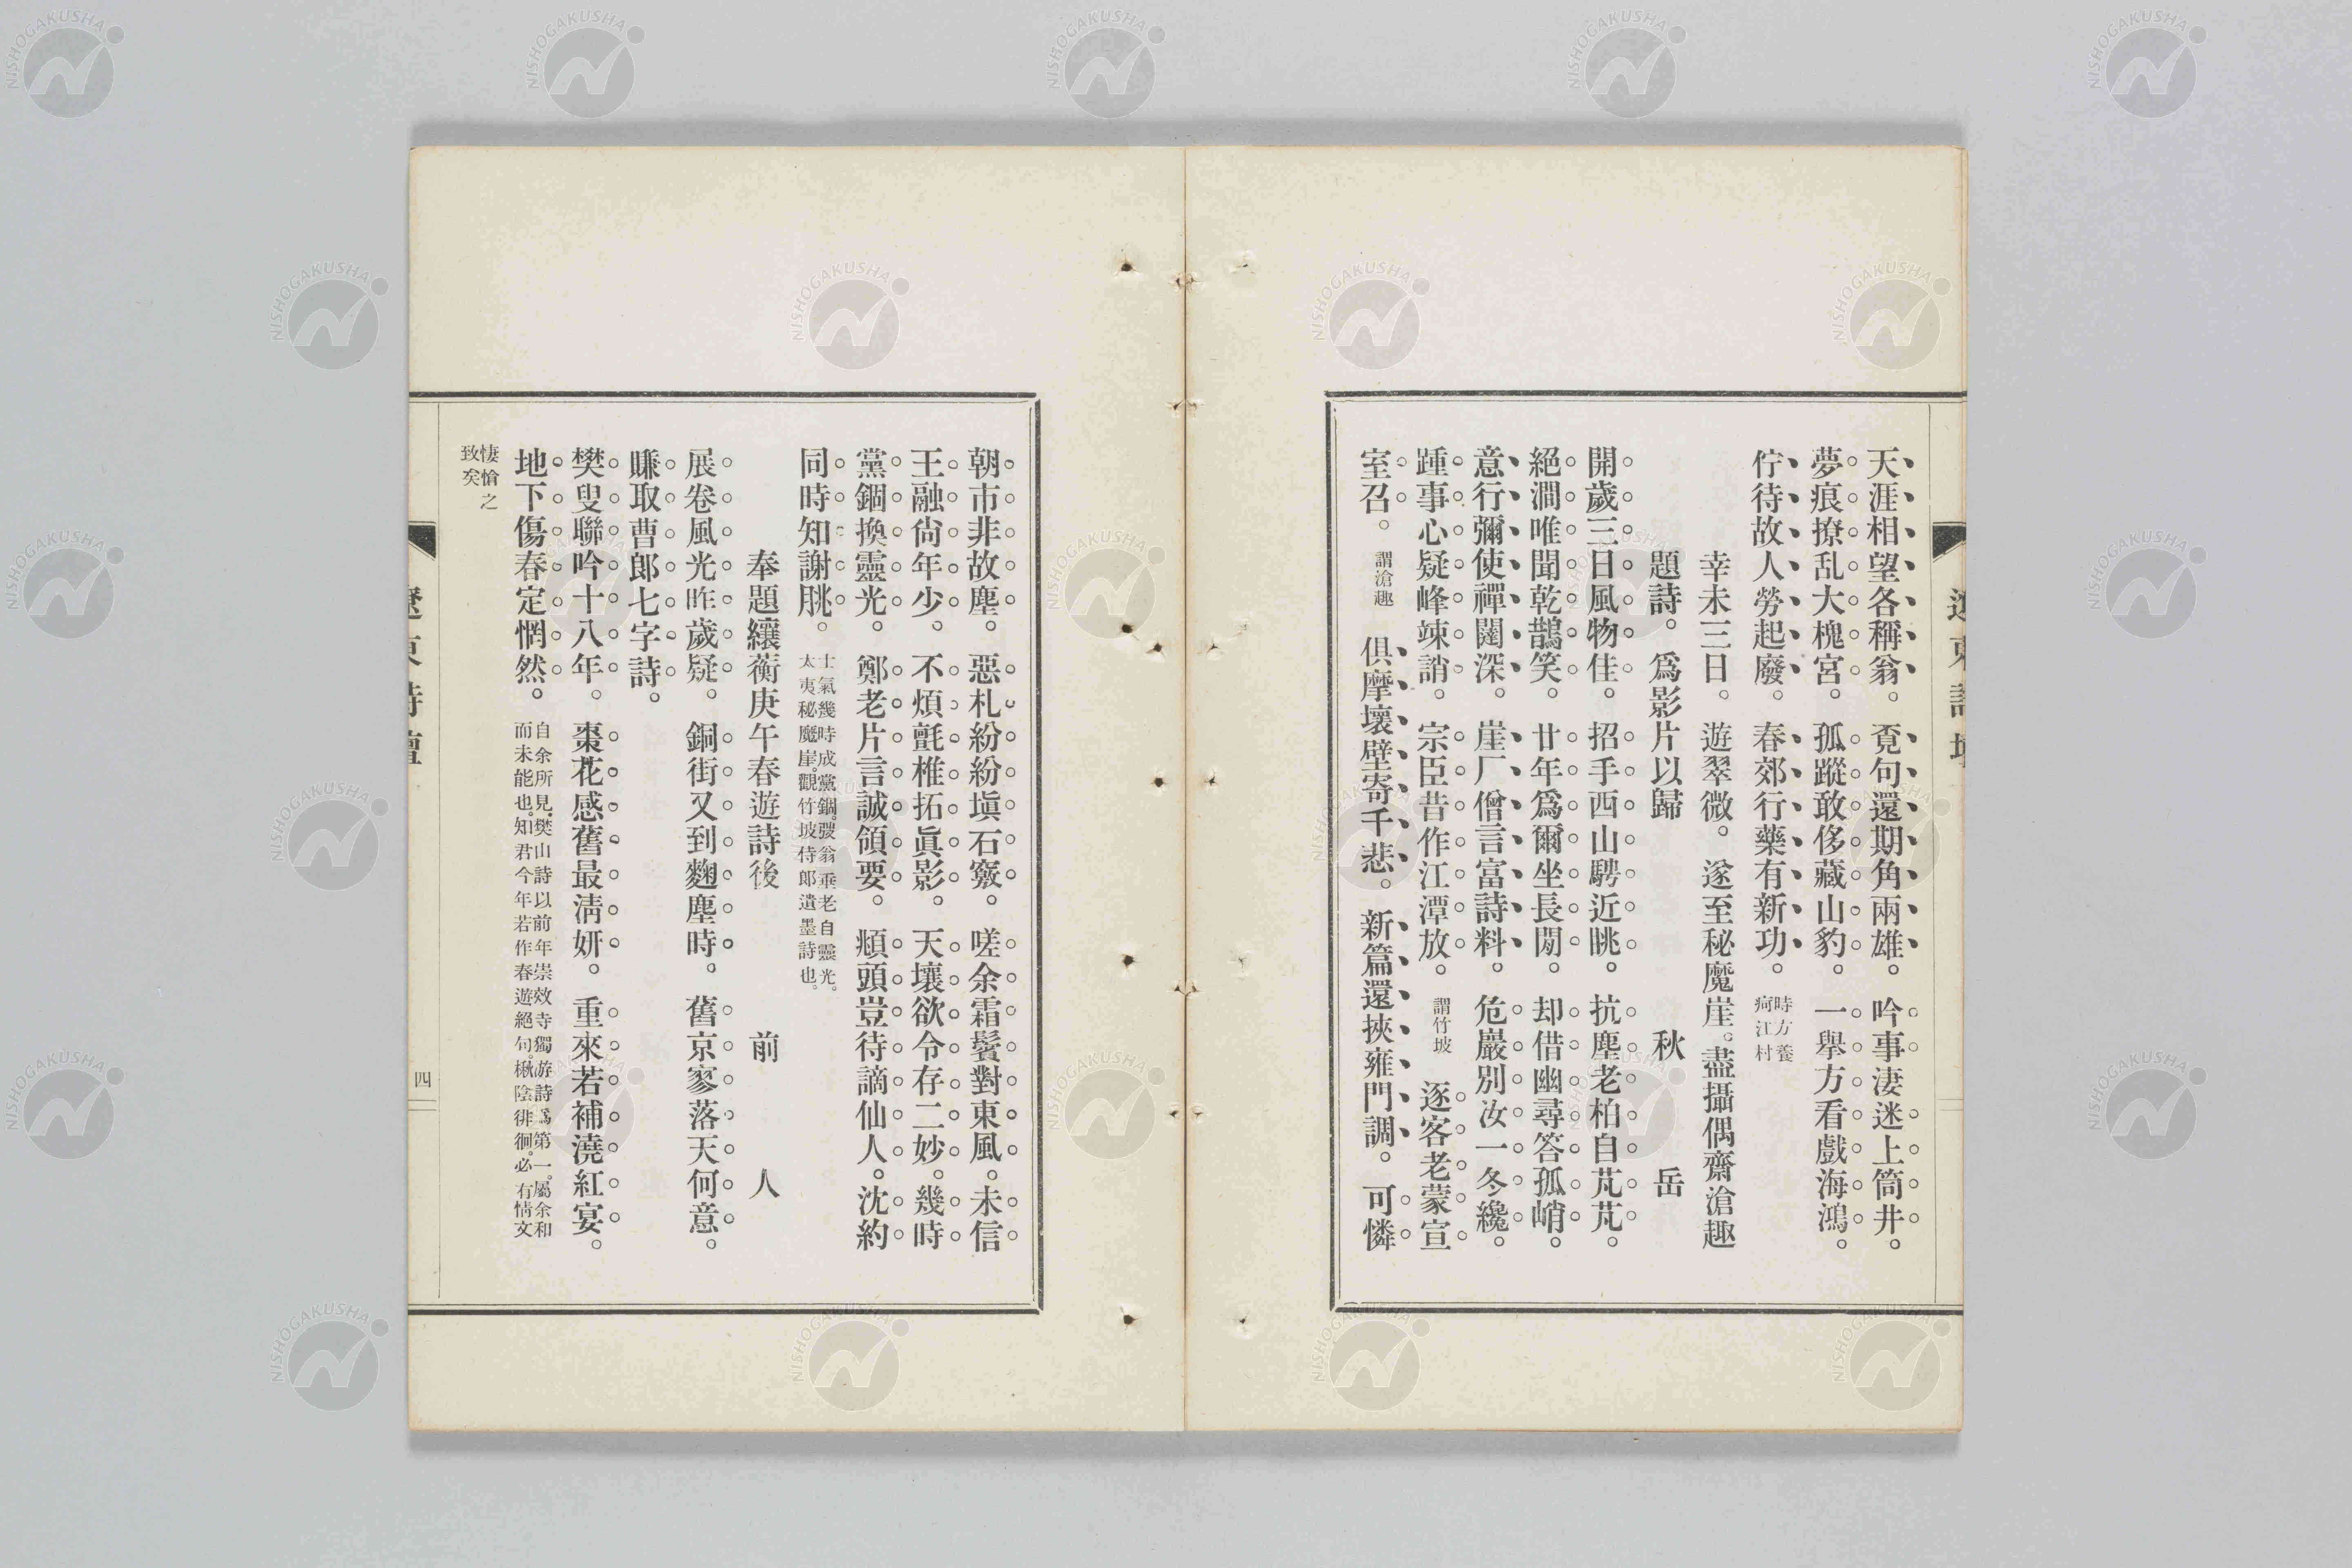 天涯相望各稱翁。覔句還期角兩雄。吟事淒迷上筒井。
夢痕撩乱大槐宮。孤蹤敢侈藏山豹。一擧方看戲海鴻。
佇待故人勞起廢。春郊行藥有新功。時方養
疴江村
幸未三日。遊翠微。遂至秘魔崖。盡攝偶齋滄趣
題詩。爲影片以歸 秋岳
開歲三日風物佳。招手西山騁近眺。抗塵老柏自芃芃。
絕澗唯聞乾鵲笑。廿年爲爾坐長閒。却借幽尋答孤峭。
意行彌使禪關深。崖厂僧言富詩料。危巖別汝一冬纔。
踵事心疑峰竦誚。宗臣昔作江潭放。謂竹坡 逐客老蒙宣
室召。謂滄趣 俱摩壞壁寄千悲。新篇還挾雍門調。可憐
朝市非故塵。惡札紛紛塡石竅。嗟余霜鬢對東風。未信
王融尙年少。不煩氈椎拓眞影。天壤欲令存二妙。幾時
黨錮換靈光。鄭老片言誠領要。頫頭豈待謫仙人。沈約
同時知謝朓。士氣幾時成黨錮。弢翁垂老自靈光。
太夷秘魔崖。觀竹坡侍郎遺墨詩也。
奉題纕蘅庚午春遊詩後 前人
展卷風光昨歲疑。銅街又到麴塵時。舊京寥落天何意。
賺取曹郞七字詩。
樊叟聯吟十八年。棗花感舊最淸妍。重來若補澆紅宴。
地下傷春定惘然。自余所見。樊山詩以前年崇效寺獨游詩爲第一。屬余和
而未能也。知君今年若作春遊絕句。楸陰徘徊。必有情文
悽愴之
致矣
遼東詩壇
四
遼東詩壇
NISHOGAKUSHA